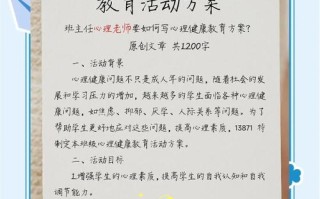 教育活动方案
班主任心理老师要如何写心理健康教育方案?
原创文章 共1200字
一、活动背景
心理健康问题不只是成人年的问题，随着社会的发
展和学习压力的增加，越来越多的学生面临各种心理健
康问题，如焦虑、抑郁、厌学、人际关系等问题。为了
帮助学生更好地应对这些问题，提高心理素质，13871 特
制定本班级心理健康教育活动方案。
二、活动目标
1.增强学生的心理素质，提高学生的自我认知和自我
调节能力。